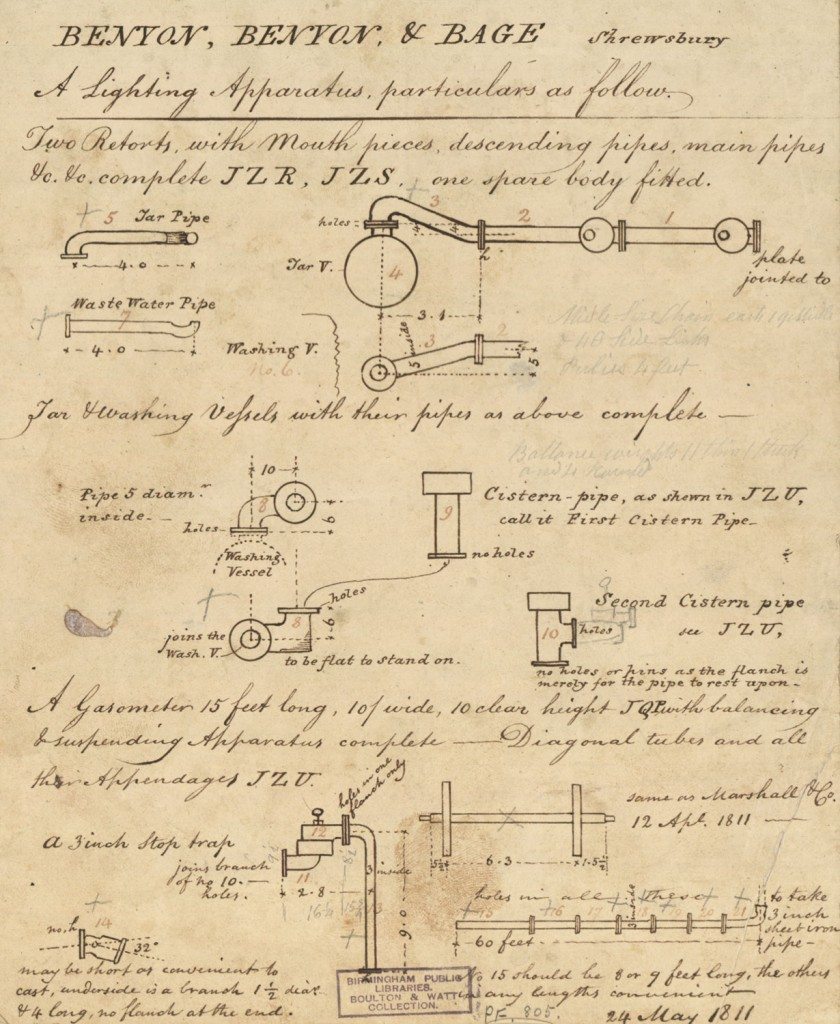 BENYON, BENYON, & BAGE Shrewsbury
A Lighting Apparatus, particulars as follow.
Two Retorts, with Mouth pieces, descending pipes, main pipes
&c. &c. complete JZR, JZS, one spare body fitted.
5 Tar Pipe
4.0
holes
3
2
1
4
Tar V.
h
plate
jointed to
3.1
Waste Water Pipe
7
4.0
Washing V.
No. 6.
5 inside
3
2
5
Tar & Washing Vessels with their pipes as above complete —
Pipe 5 diam.r
inside.
10
8
6
holes
Washing
Vessel
9
no holes
Cistern-pipe, as shewn in JZU,
call it First Cistern Pipe
holes
8
6
joins the
Wash. V.
to be flat to stand on.
10
holes
Second Cistern pipe
see JZU,
no holes or pins as the flanch is
merely for the pipe to rest upon
A Gasometer 15 feet long, 10/ wide, 10 clear height JQP with balancing
& suspending Apparatus complete — Diagonal tubes and all
their Appendages JZU.
holes in one
flanch only
a 3 inch Stop trap
12
joins branch
of no 10.
holes.
11
2.8
3 inside
13
9.0
same as Marshall & Co.
12 Apl. 1811
5½
6.3
1.5½
holes in all these
15 16 17 18 19 20 21
3 inside
60 feet
to take
3 inch
sheet iron
pipe
no. h
14
32°
may be short as convenient to
cast, underside is a branch 1½ diar.
& 4 long, no flanch at the end.
No 15 should be 8 or 9 feet long, the others
in any lengths convenient
PF. 805.
24 May 1811
BIRMINGHAM PUBLIC
LIBRARIES.
BOULTON & WATT
COLLECTION.